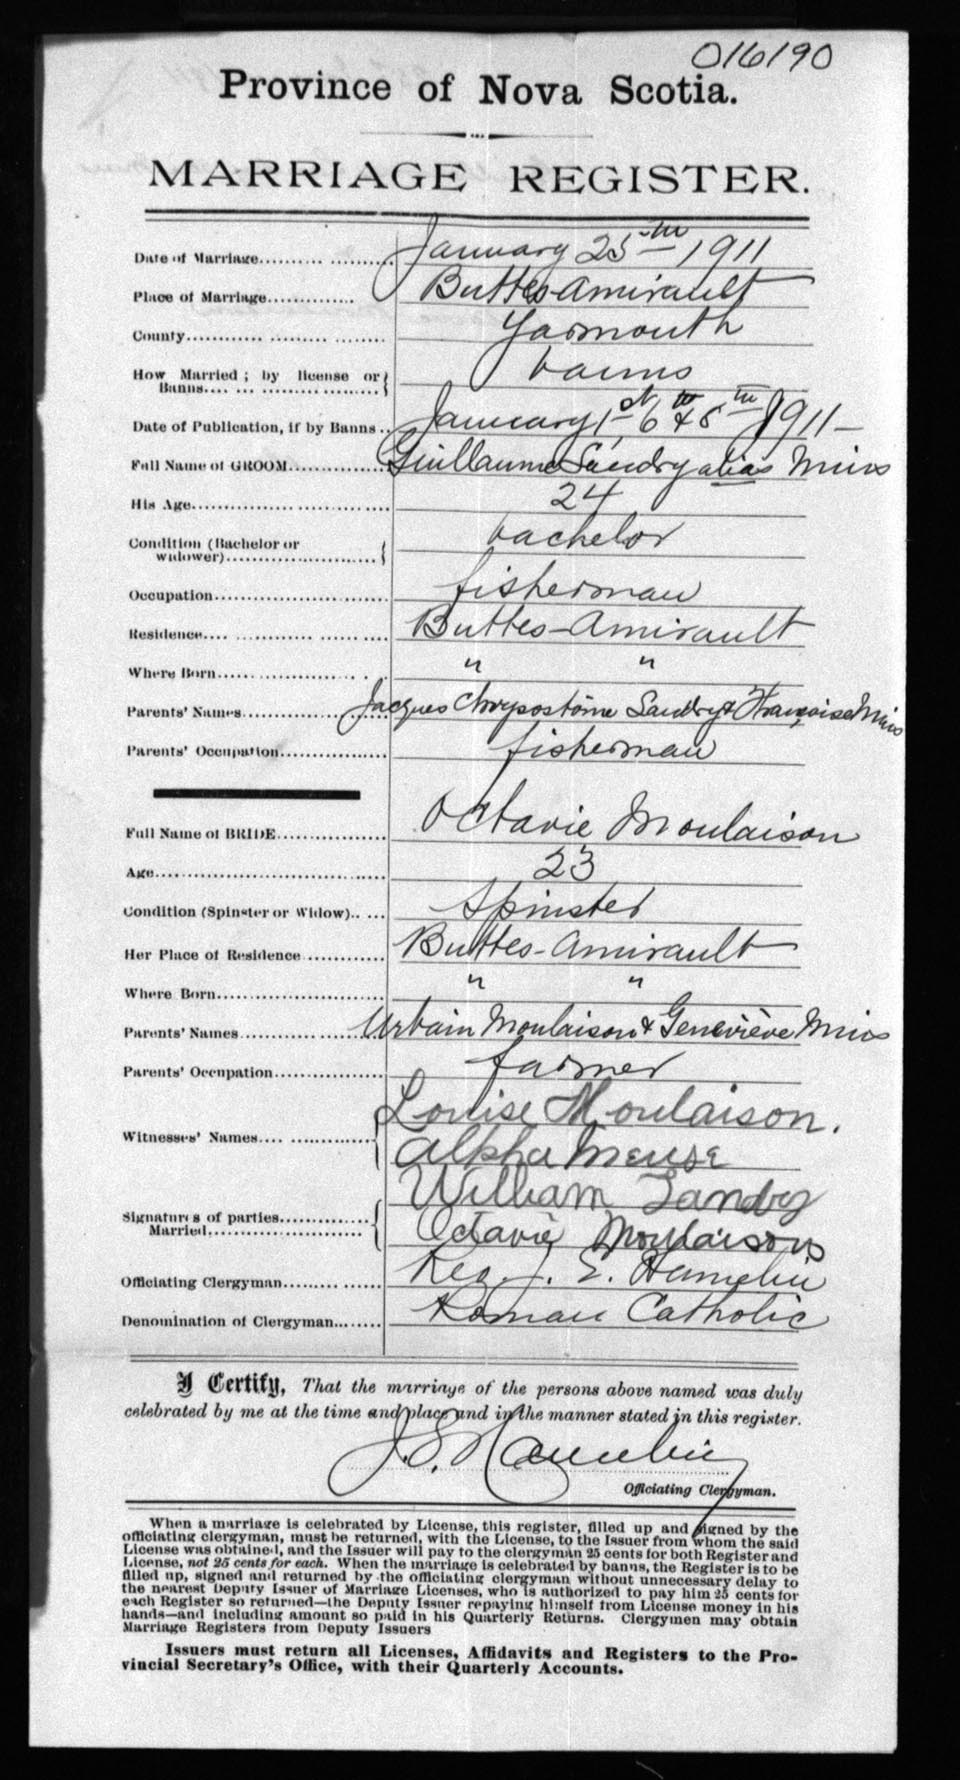 016190
Province of Nova Scotia.
MARRIAGE REGISTER.
Date of Marriage.......... ........... January 25th 1911
Place of Marriage.............. Buttes-Amirault
County............ ......... ......... Yarmouth
How Married ; by license or
Banns.... ... ................... } banns
Date of Publication, if by Banns .. January 1st, 6th & 8th 1911—
Full Name of GROOM................ Guillaume Landry alias Mius
His Age........................ .......... 24
Condition (Bachelor or
widower)........................... { bachelor
Occupation............................. fisherman
Residence.... ............... ...... .... Buttes-Amirault
Where Born....................... . .. " "
Parents' Names....................... Jacques Chrysostôme Landry & Françoise Mius
Parents' Occupation................. fisherman
Full Name of BRIDE................. Octavie Moulaison
Age....................................... 23
Condition (Spinster or Widow).. .... Spinster
Her Place of Residence ............. Buttes-Amirault
Where Born............................ " "
Parents' Names...................... Urbain Moulaison & Geneviève Mius
Parents' Occupation................. farmer
Witnesses' Names.... ............... { Louise Moulaison.
Alpha Meuse
Signatures of parties................ William Landry
Married............................. { Octavie Moulaison
Officiating Clergyman........ ...... Rev. J. E. Hamelin
Denomination of Clergyman......... Roman Catholic
I Certify, That the marriage of the persons above named was duly
celebrated by me at the time and place and in the manner stated in this register.
J. E. Hamelin
Officiating Clergyman.
When a marriage is celebrated by License, this register, filled up and signed by the
officiating clergyman, must be returned, with the License, to the Issuer from whom the said
License was obtained, and the Issuer will pay to the clergyman 25 cents for both Register and
License, not 25 cents for each. When the marriage is celebrated by banns, the Register is to be
filled up, signed and returned by the officiating clergyman without unnecessary delay to
the nearest Deputy Issuer of Marriage Licenses, who is authorized to pay him 25 cents for
each Register so returned—the Deputy Issuer repaying himself from License money in his
hands—and including amount so paid in his Quarterly Returns. Clergymen may obtain
Marriage Registers from Deputy Issuers
Issuers must return all Licenses, Affidavits and Registers to the Pro-
vincial Secretary's Office, with their Quarterly Accounts.